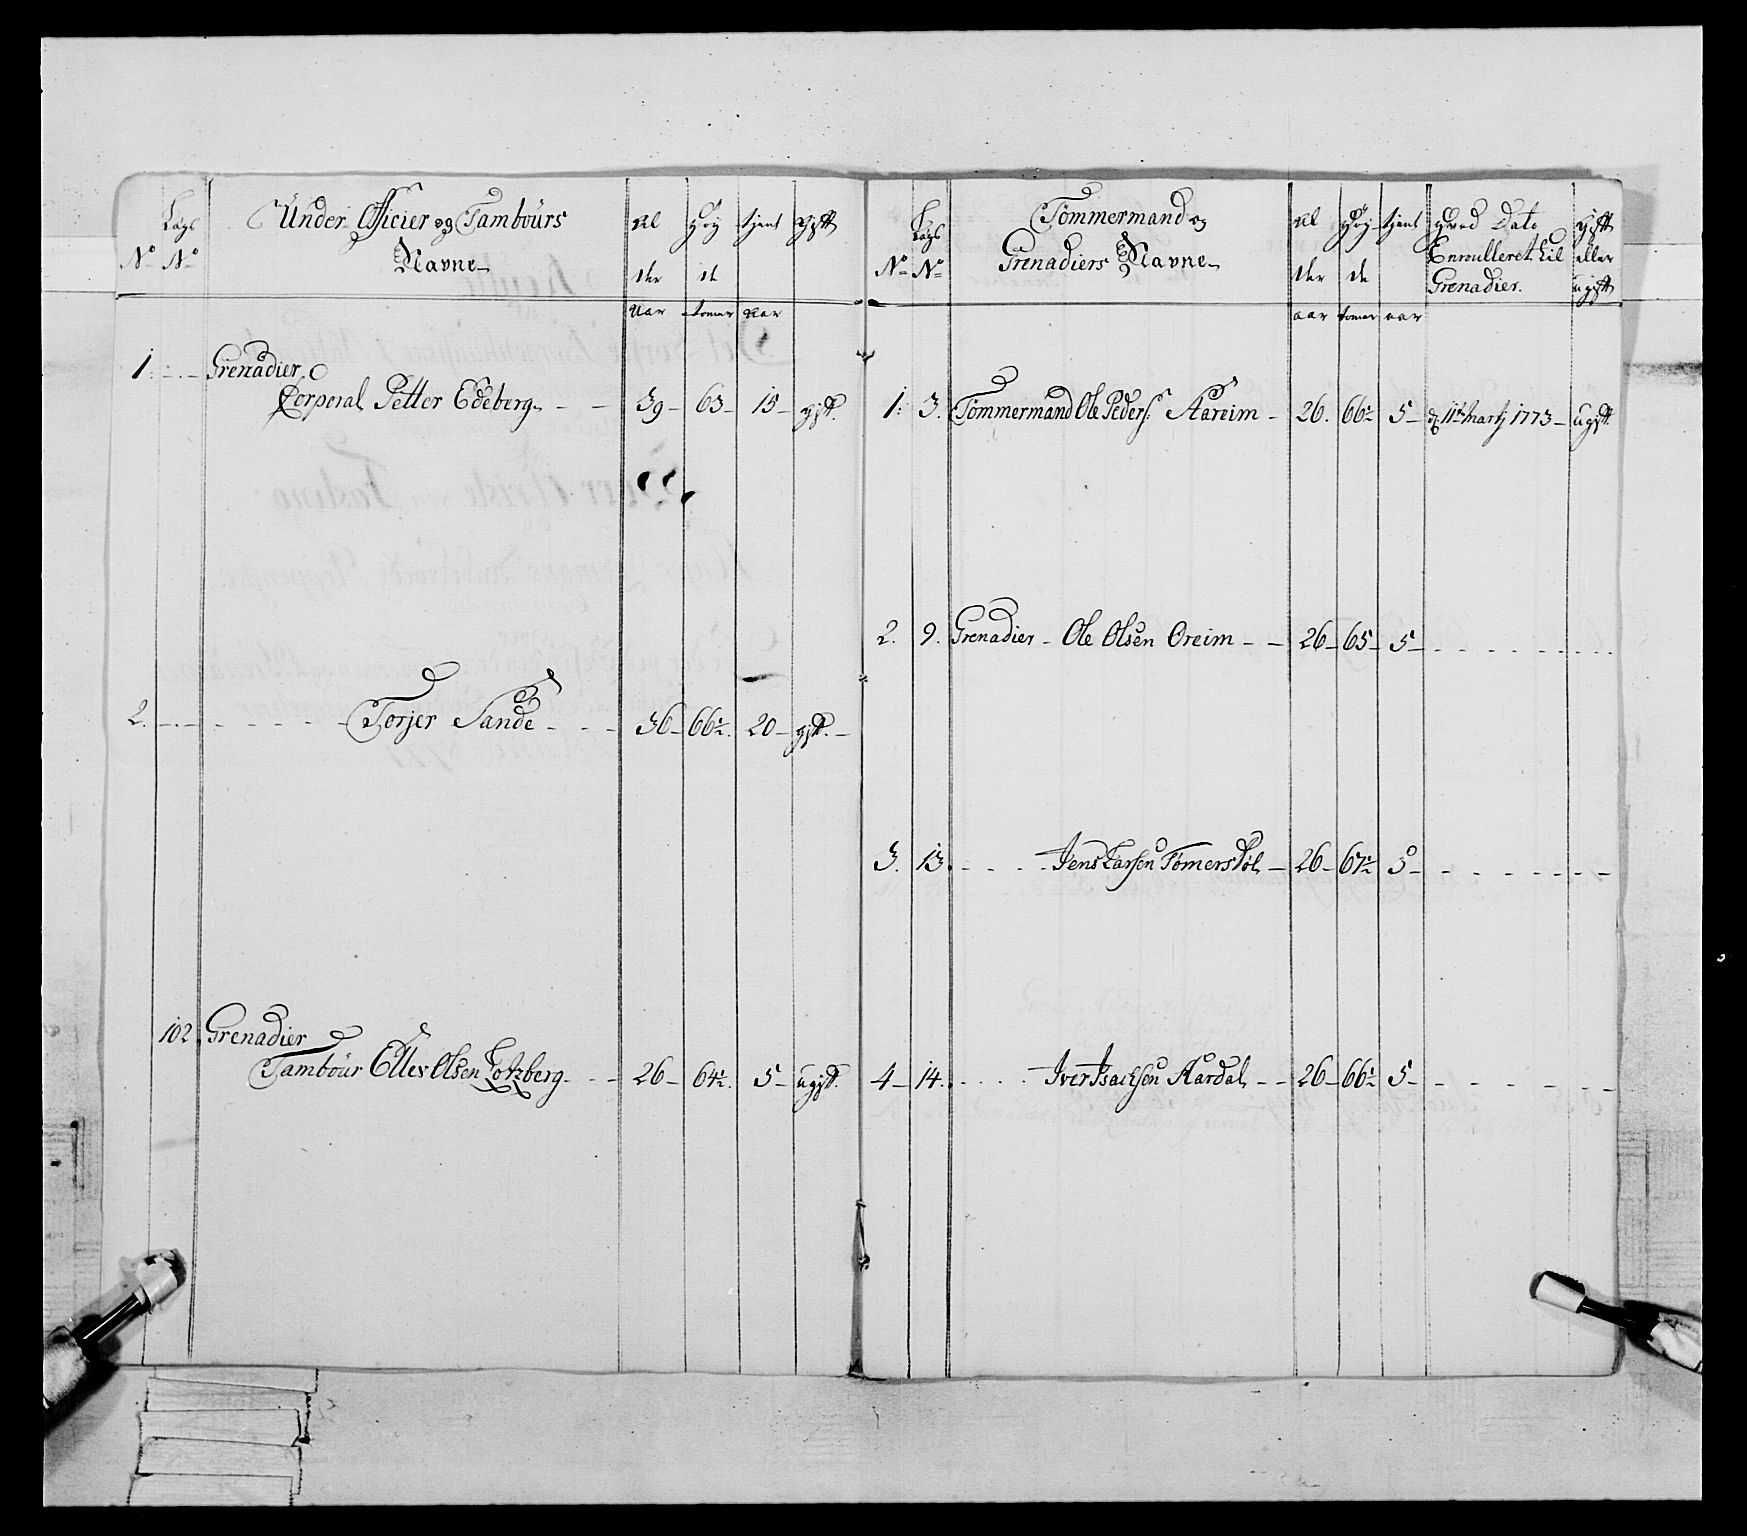 Lægs Under Officier og Tambours Al Høy tjent gift
No No Navne der de
Aar tomer Aar
1. Grenadier
Corporal Petter Edeberg 39 63 15 gift.
2. Torjer Sande 36 66½ 20 gift.
102 Grenadier
Tambour Elles Olsen Lotzberg 26 64½ 5 ugift.
Lægs Tömmermand og Al Høy tjent Hvad Dato gift
No No Grenadiers Navne der de Enroulleret til eller
Grenadier. ugift
aar tomer aar
1. 3. Tömmermand Ole Peders: Aareim 26. 66½ 5 d 11te Martj 1773 ugift.
2. 9. Grenadier Ole Olsen Oreim 26 65 5
3. 13. Jens Larsen Tömersdøl 26 67½ 5
4 14. Iver Isachsen Aardal 26 66½ 5